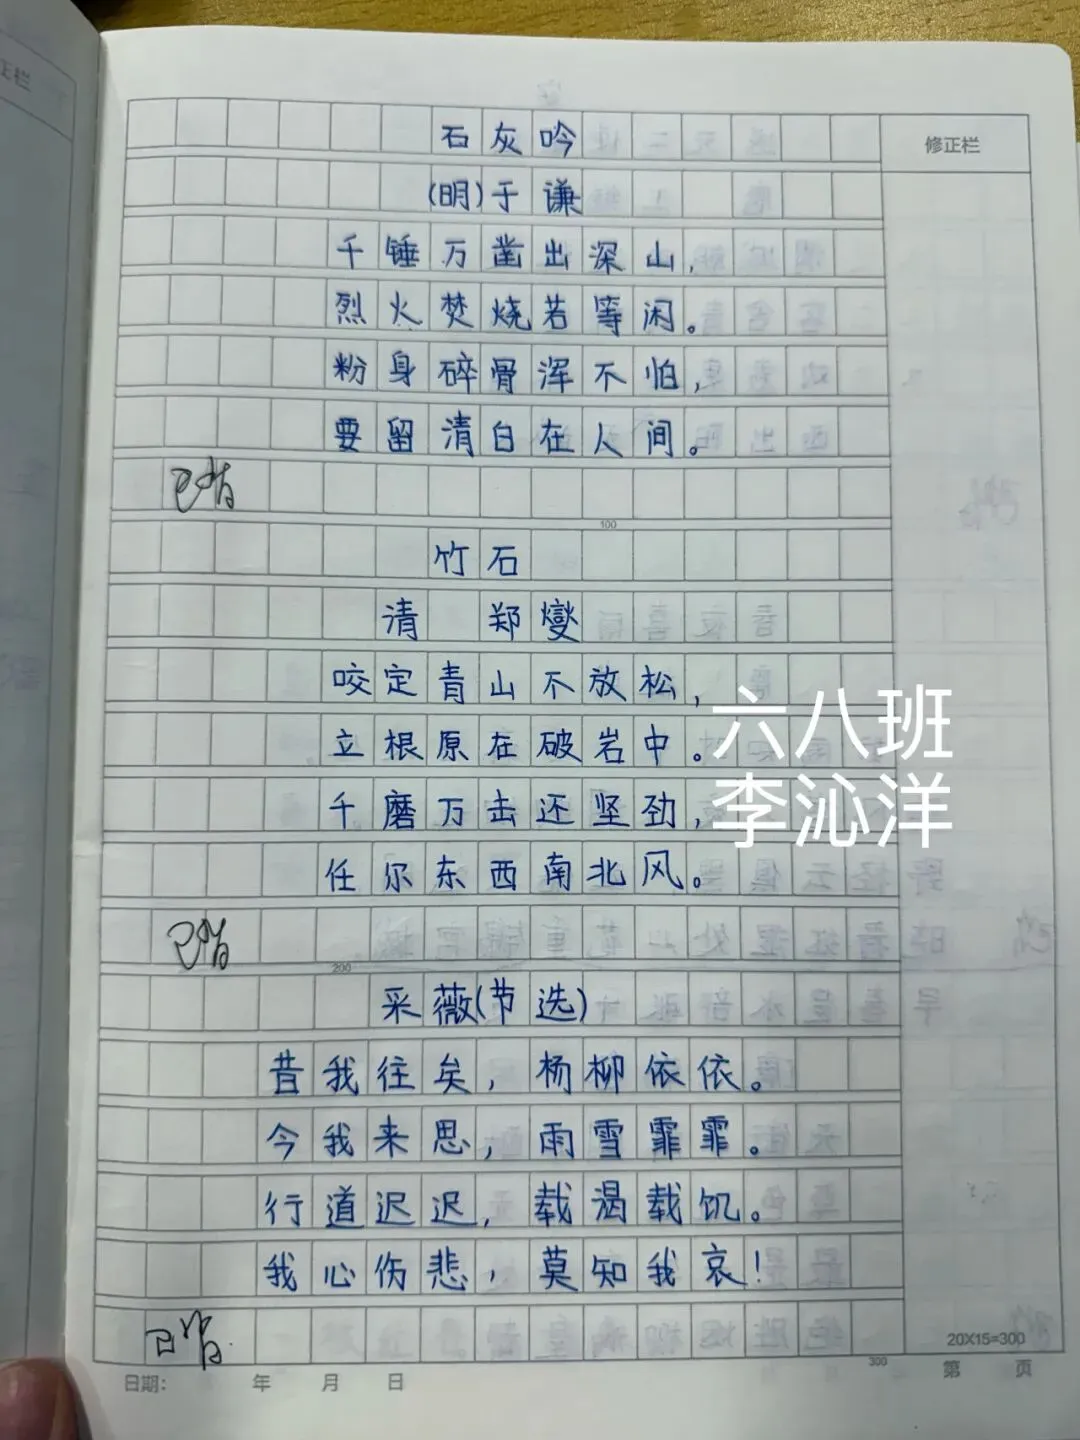 石灰吟
修正栏
(明)于谦
千锤万凿出深山,
烈火焚烧若等闲。
粉身碎骨浑不怕,
要留清白在人间。
已背
100
竹石
清 郑燮
咬定青山不放松,
立根原在破岩中。
千磨万击还坚劲,
任尔东西南北风。
六八班
李沁洋
已背
200
采薇(节选)
昔我往矣,杨柳依依。
今我来思,雨雪霏霏。
行道迟迟,载渴载饥。
我心伤悲,莫知我哀!
已背
20X15=300
300
日期: 年 月 日
第 页